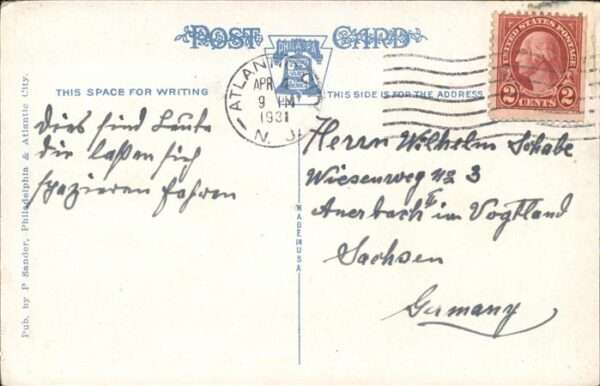 POST CARD
PHILADELPHIA
THIS SPACE FOR WRITING
THIS SIDE IS FOR THE ADDRESS
ATLANTIC
APR
9 PM
1931
N. J.
UNITED STATES POSTAGE
2 CENTS 2
Dies sind Leute
die laßen sich
spazieren fahren
Herrn Wilhelm Schabe
Wiesenweg No 3
Auerbach II im Vogtland
Sachsen
Germany
MADE IN USA
Pub. by P Sander, Philadelphia & Atlantic City.